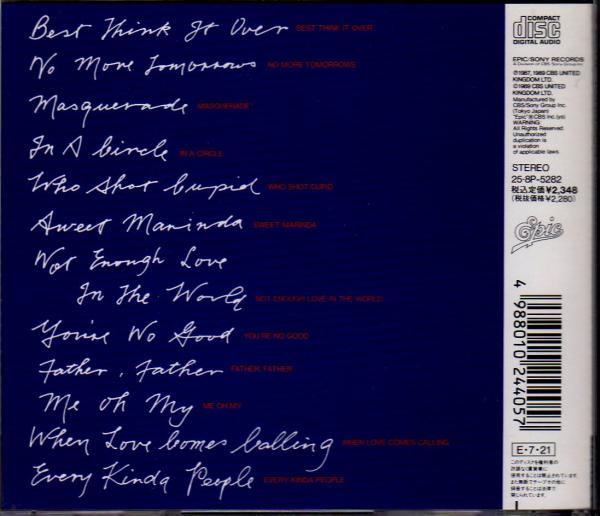 Best Think It Over BEST THINK IT OVER
No More Tomorrows NO MORE TOMORROWS
Masquerade MASQUERADE
In A Circle IN A CIRCLE
Who Shot Cupid WHO SHOT CUPID
Sweet Marinda SWEET MARINDA
Not Enough Love
In The World NOT ENOUGH LOVE IN THE WORLD
You're No Good YOU'RE NO GOOD
Father, Father FATHER, FATHER
Me Oh My ME OH MY
When Love Comes Calling WHEN LOVE COMES CALLING
Every Kinda People EVERY KINDA PEOPLE
COMPACT
disc
DIGITAL AUDIO
EPIC/SONY RECORDS
A Division of CBS/Sony Group Inc.
℗1987, 1989 CBS UNITED
KINGDOM LTD.
©1989 CBS UNITED
KINGDOM LTD.
Manufactured by
CBS/Sony Group Inc.
(Tokyo Japan)
"Epic"®CBS Inc.
WARNING:
All Rights Reserved.
Unauthorized
duplication is
a violation
of applicable laws.
STEREO
25·8P-5282
税込定価¥2,348
(税抜価格¥2,280)
Epic
4988010244057
E·7·21
このディスクを権利者の
許諾なく賃貸業に
使用することは禁止されています。
また無断でテープその他に
録音することは法律で
禁じられています。